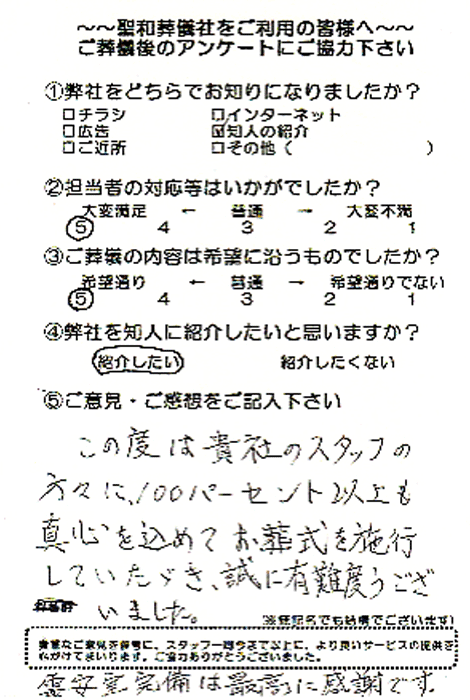 ～～聖和葬儀社をご利用の皆様へ～～
ご葬儀後のアンケートにご協力下さい
①弊社をどちらでお知りになりましたか？
□チラシ □インターネット
□広告 ☑知人の紹介
□ご近所 □その他（ ）
②担当者の対応等はいかがでしたか？
大変満足 ← 普通 → 大変不満
⑤ 4 3 2 1
③ご葬儀の内容は希望に沿うものでしたか？
希望通り ← 普通 → 希望通りでない
⑤ 4 3 2 1
④弊社を知人に紹介したいと思いますか？
紹介したい 紹介したくない
⑤ご意見・ご感想をご記入下さい
この度は貴社のスタッフの
方々に、100パーセント以上も
真心を込めてお葬式を施行
していただき、誠に有難度うござ
いました。
※無記名でも結構でございます）
貴重なご意見を参考に、スタッフ一同今まで以上に、より良いサービスの提供を
心がけてまいります。ご協力ありがとうございました。
霊安室完備は最高に感謝です